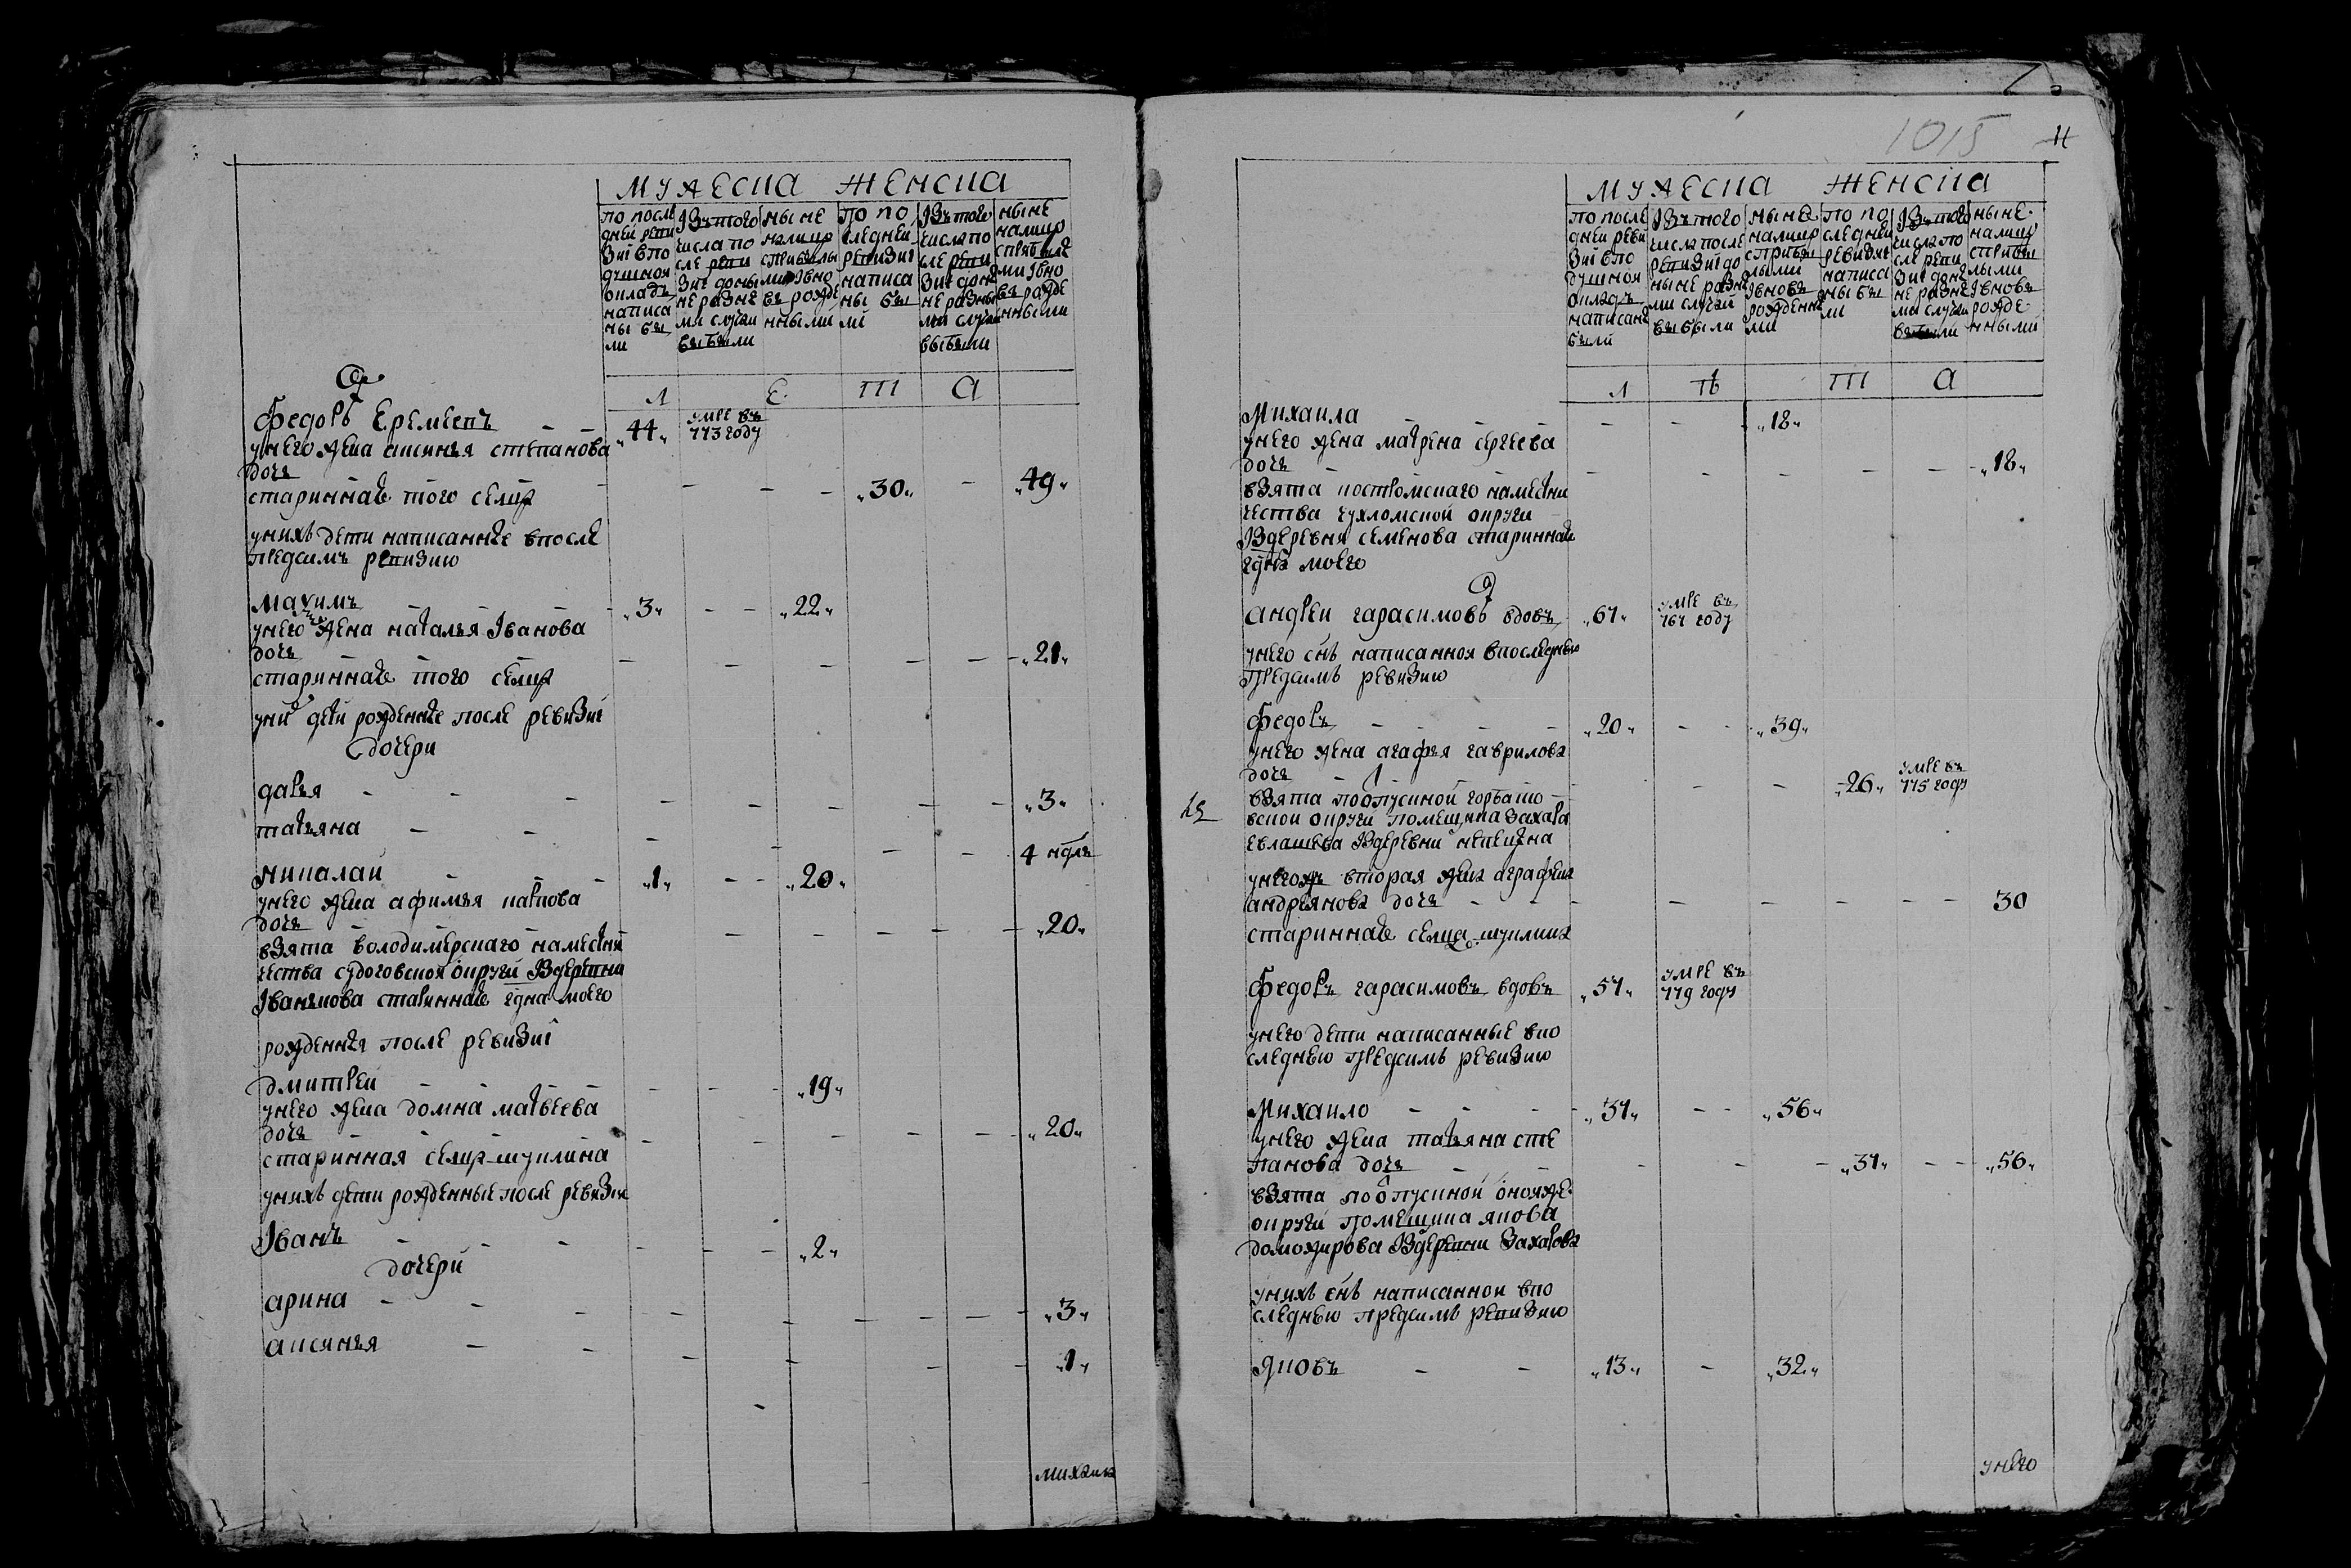 мужеска женска
по после
дней реви
зиі впо
душной
окладъ
написа
ны бы
ли
Ізътого
числа по
сле реви
зиі доны
не разны
ми случаи
выбыли
ныне
налицо
сприбылы
ми Івно
въ рожде
нными
по по
следней
ревизиі
написа
ны бы
ли
Ізътого
числа по
сле реви
зиі доны
не разны
ми случаи
выбыли
ныне
налицо
сприбылы
ми Івно
въ рожде
нными
л е т а
Федоръ Еремеевъ - - „44„ умре въ
773 году
унего жена аксинья степанова
дочь - - - - „30„ - „49„
стариннае того селца
унихъ дети написанные впосле
предсимъ ревизию
Махимъ - - - „3„ - - „22„
унего жена наталья Іванова
дочь - - - - - - - „21„
стариннае того селца
уних дети рожденные после ревизиі
дочери
дарья - - - - - - - - „3„
татьяна - - - - - - 4 ндлъ
николаи - - - „1„ - - „20„
унего жена афимья карпова
дочь - - - - - - - „20„
взята володимерскаго наместни
чества судоговской округи Вдеревни
Іванкова стариннае гдна моего
рожденныя после ревизиі
дмитреи - - - - - „19„
унего жена домна матвеева
дочь - - - - - - - „20„
старинная селца шуклина
унихъ дети рожденные после ревизіи
Іванъ - - - - - - „2„
дочери
арина - - - - - - - - - „3„
аксинья - - - - - - „1„
михаила
1015
11
мужеска женска
по после
дней реви
зиі впо
душной
окладъ
написаны
были
Ізътого
числа после
ревизиі до
ныне разны
ми случаи
выбыли
ныне
налицо
сприбы
лыми
Івновъ
рожденны
ми
по по
следней
ревизиі
написа
ны бы
ли
Ізътого
числа по
сле реви
зиі доны
не разны
ми случаи
выбыли
ныне
налицо
сприбы
лыми
Івновъ
рожде
нными
л ѣ т а
Михаила - - - - - - „18„
унего жена матрена сергеева
дочь - - - - - - - „18„
взята костромскаго наместни
чества чухломской округи
Іздеревня семенова стариннае
гдна моего
андреи гарасимовъ вдовъ „61„ умре въ
767 году
унего снъ написанноя впоследнею
предсимъ ревизию
Федоръ - - - - „20„ - - „39„
унего жена агафья гаврилова
дочь - - - - „26„ умре въ
775 году
взята поопускной горбато
вской округи помещика захара
евлашева Вдеревни
унегожъ вторая жена аграфена
андреянова дочь - - - - - - - - 30
стариннае селца шуклина
Федоръ гарасимовъ вдовъ „51„ умре въ
779 году
унего дети написанные впо
следнею предсимъ ревизию
Михаило - - - „37„ - - „56„
унего жена татьяна сте
панова дочь - - - - - „37„ - - „56„
взята поопускной оноя же
округи помещика якова
доможирова Вдеревни захарова
унихъ снъ написанной впо
следнею предсимъ ревизию
Яковъ - - „13„ - „32„
унего